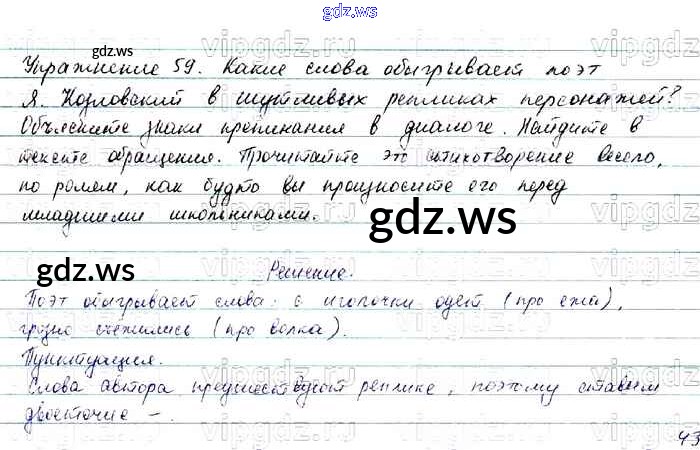 gdz.ws
gdz.ws
Упражнение 59. Какие слова обыгрывает поэт
Я. Козловский в шутливых репликах персонажей?
Объясните знаки препинания в диалоге. Найдите в
тексте обращения. Прочитайте это стихотворение весело,
по ролям, как будто вы произносите его перед
младшими школьниками.
gdz.ws
gdz.ws
Решение.
Поэт обыгрывает слова: с иголочки одет (про ежа),
грозно съежились (про волка).
Пунктуация.
Слова автора предшествуют реплике, поэтому ставим
двоеточие –.
gdz.ws
43